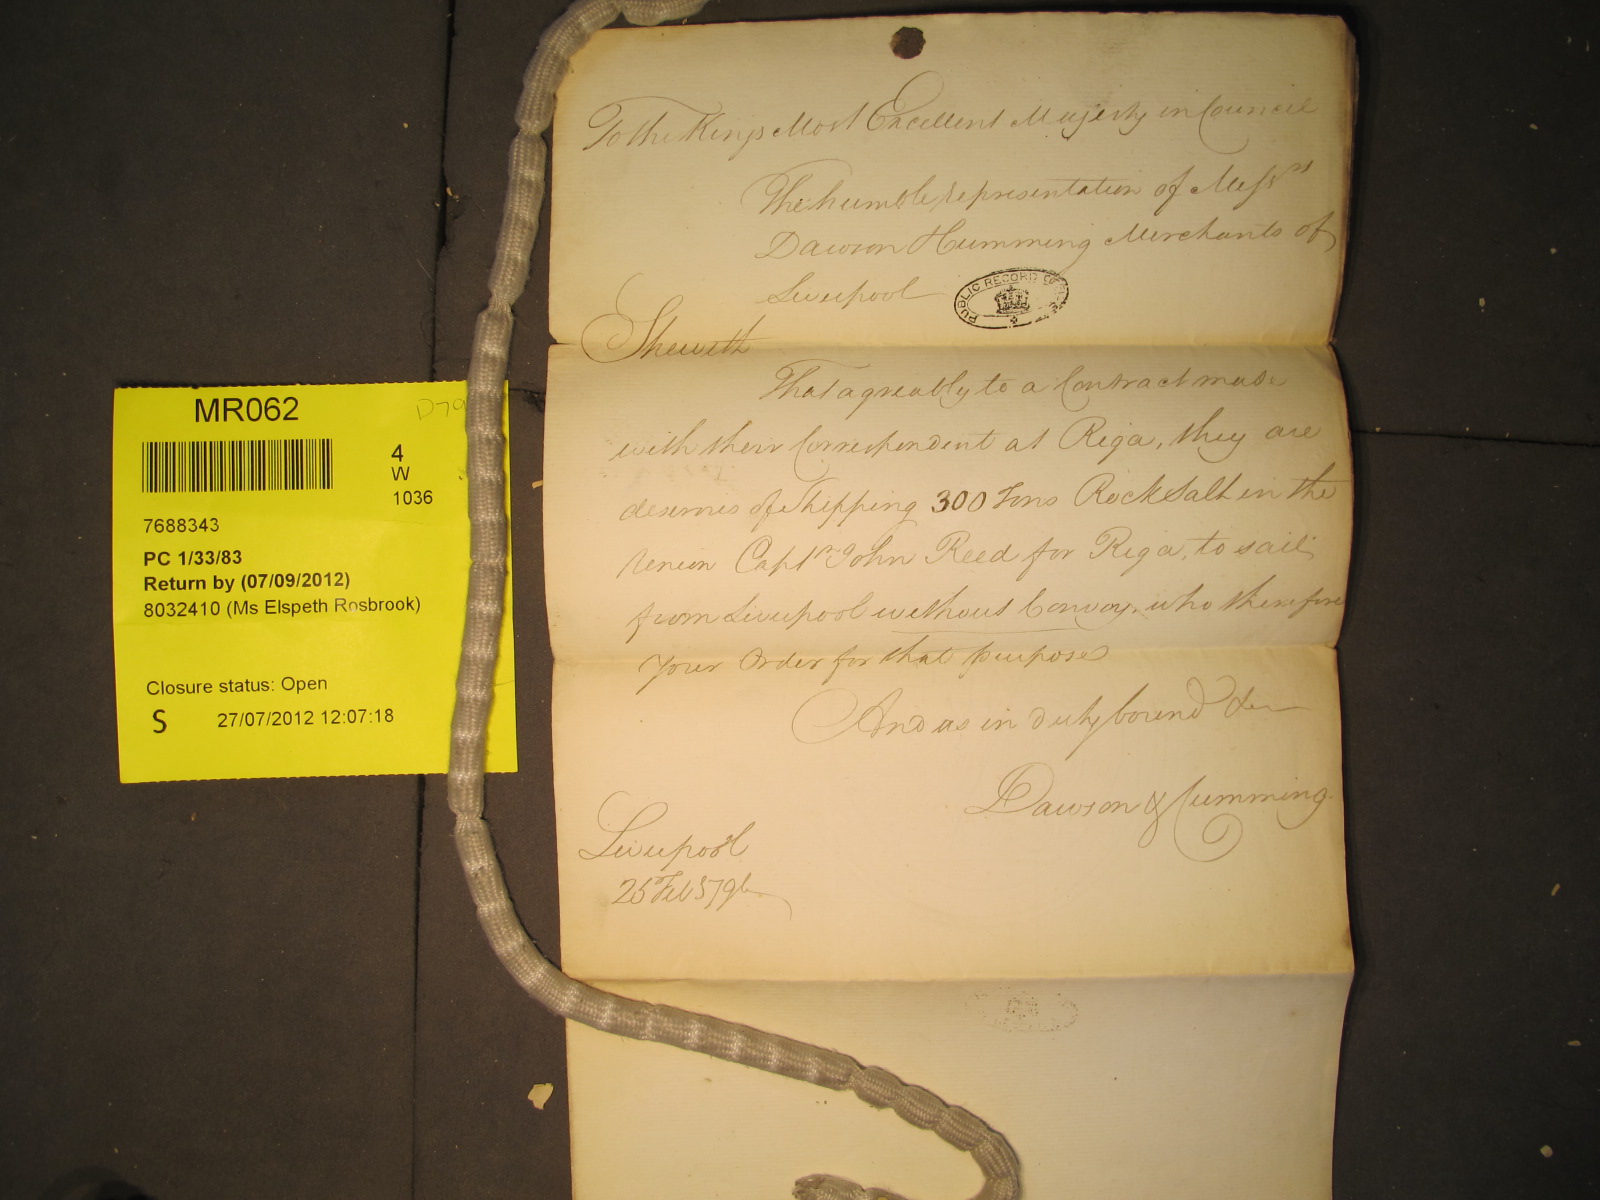 MR062
D79
4
W
1036
7688343
PC 1/33/83
Return by (07/09/2012)
8032410 (Ms Elspeth Rosbrook)
Closure status: Open
S 27/07/2012 12:07:18
To the Kings Most Excellent Majesty in Council
The humble representation of Messrs
Dawson & Cumming Merchants of
Liverpool
PUBLIC RECORD OFFICE
Sheweth
That agreably to a Contract made
with their Correspondent at Riga, they are
desirous of Shipping 300 Tons Rock Salt in the
Union Captn John Reed for Riga, to sail
from Liverpool without Convoy, who therefore
Your Order for that purpose
And as in duty bound &c
Dawson & Cumming
Liverpool
25 Feb 1796